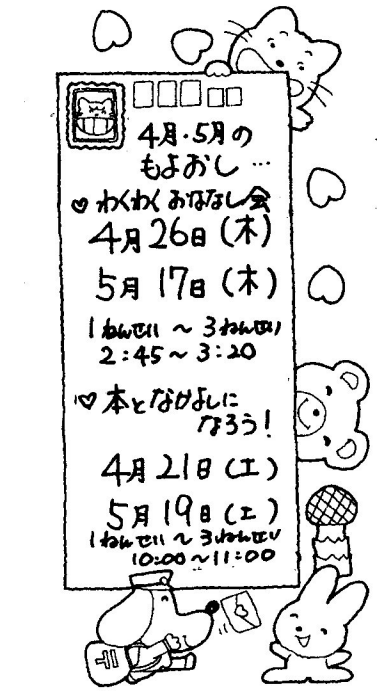 4月・5月の
もよおし…
♡わくわくおはなし会
4月26日(木)
5月17日(木)
1ねんせい～3ねんせい
2:45～3:20
♡本となかよしに
なろう!
4月21日(土)
5月19日(土)
1ねんせい～3ねんせい
10:00～11:00